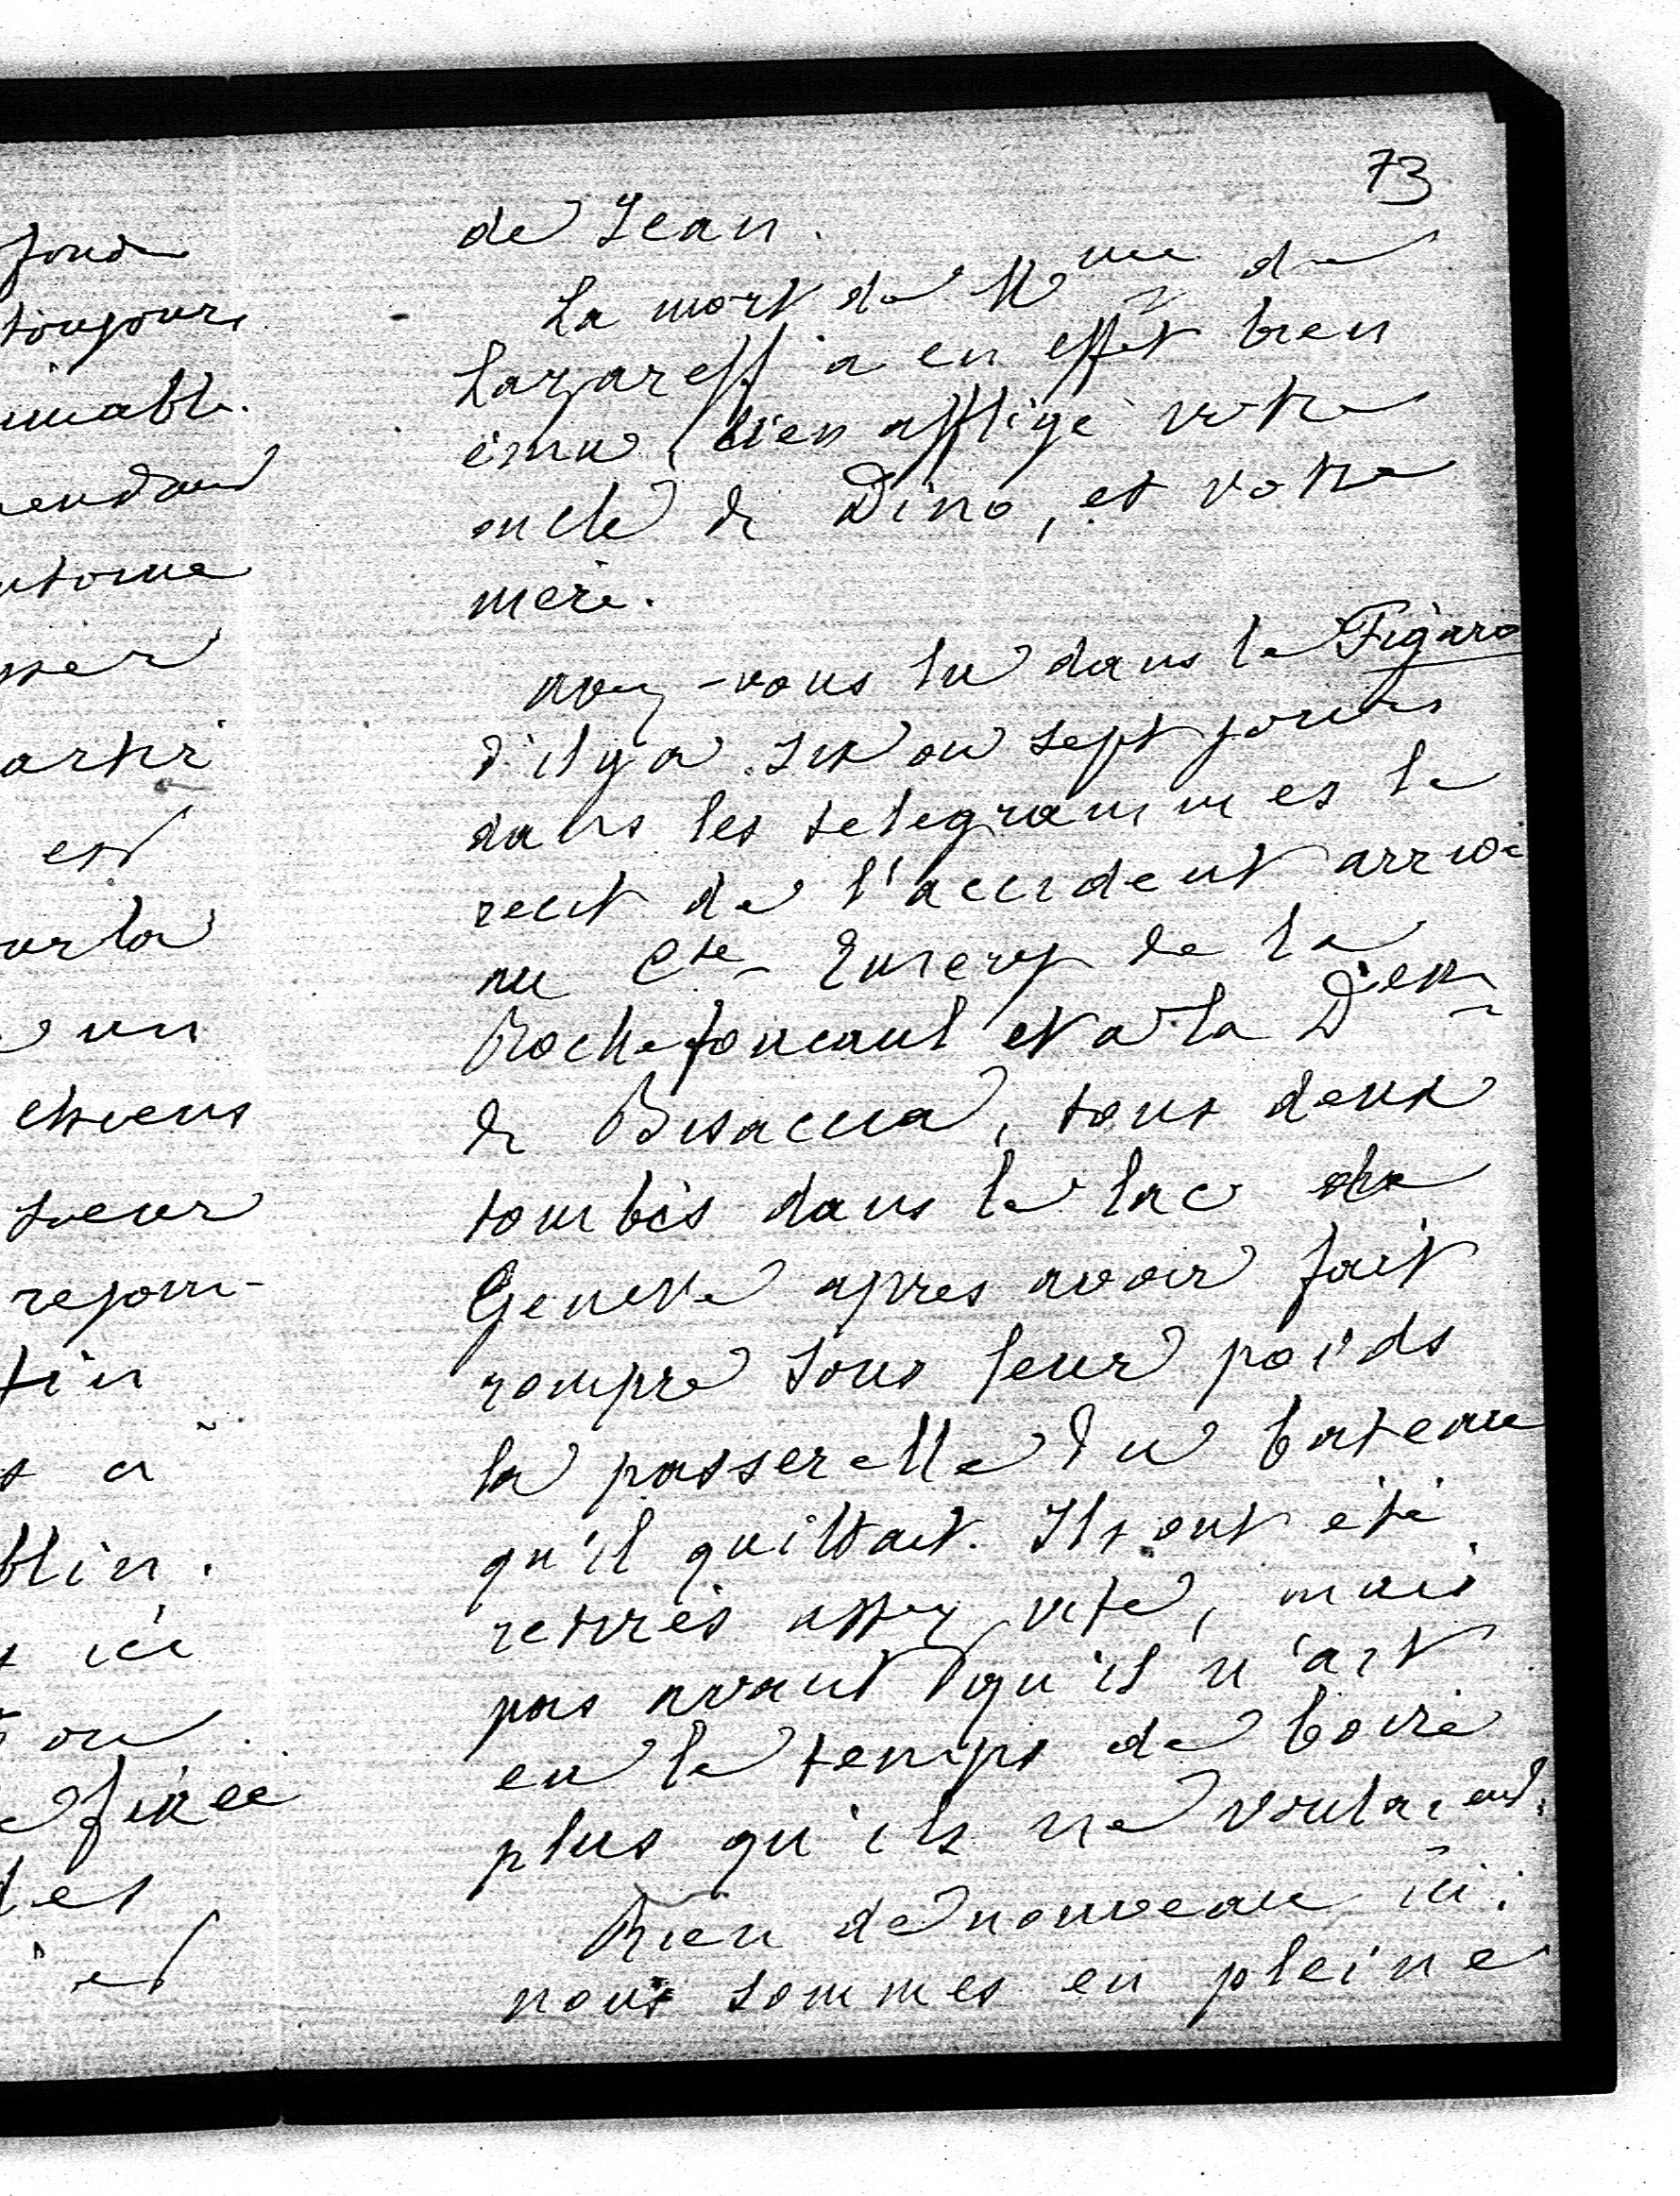 73
fond
toujours
est
un
chiens
soeur
rejoin-
à
blin.
ici
ou
fixée
des
de Jean.
La mort de Mme de
Lazareff a en effet bien
ému, bien affligé votre
oncle de Dino, et votre
mère.
avez-vous lu dans le Figaro
d'il y a six ou sept jours
dans les telegrammes le
recit de l'accident arrivé
au Cte Aimery de la
Rochefoucaul et à la Desse
de Bisaccia, tous deux
tombés dans le lac de
Geneve apres avoir fait
rompre sous leur poids
la passerelle du bateau
qu'il quittait. Ils ont été
retirés assez vite, mais
pas avant qu'il n'ait
eu le temps de boire
plus qu'ils ne voulaient.
Rien de nouveau ici.
nous sommes en pleine